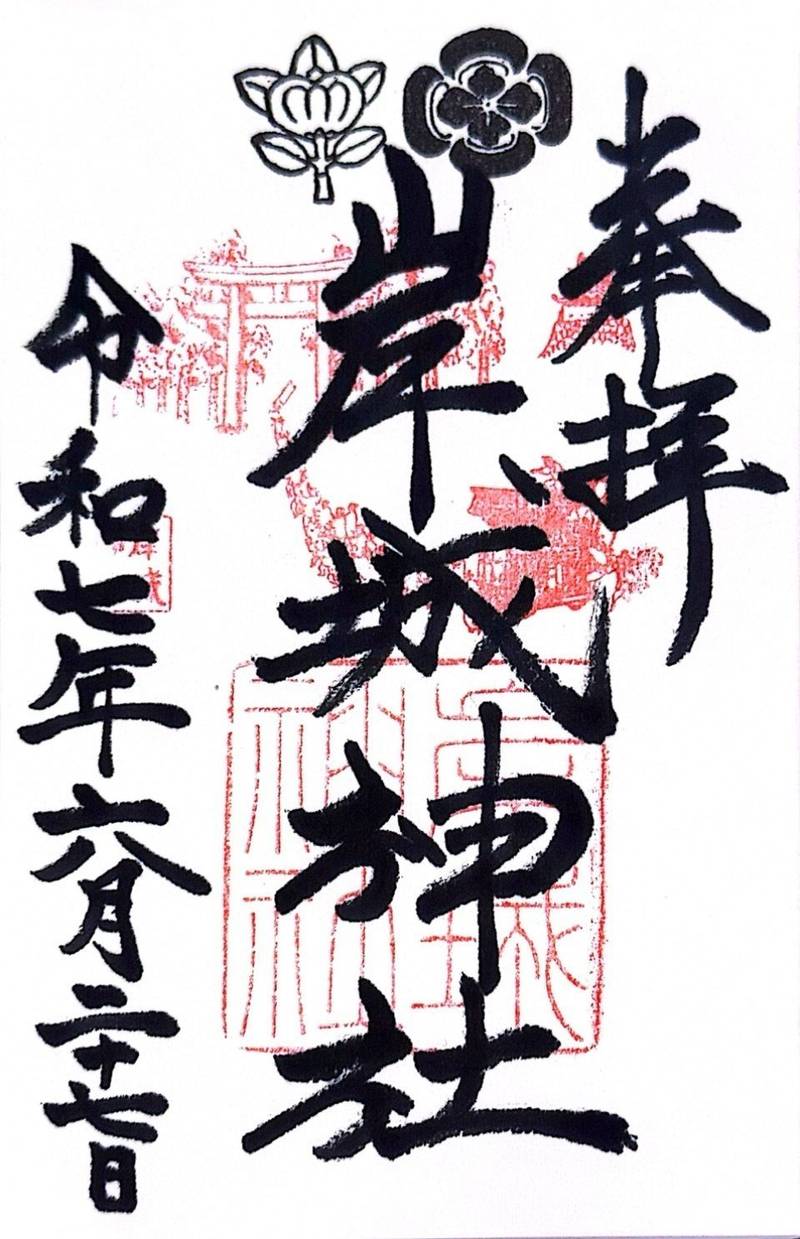 奉拝
岸城神社
令和七年六月二十七日
岸城神社